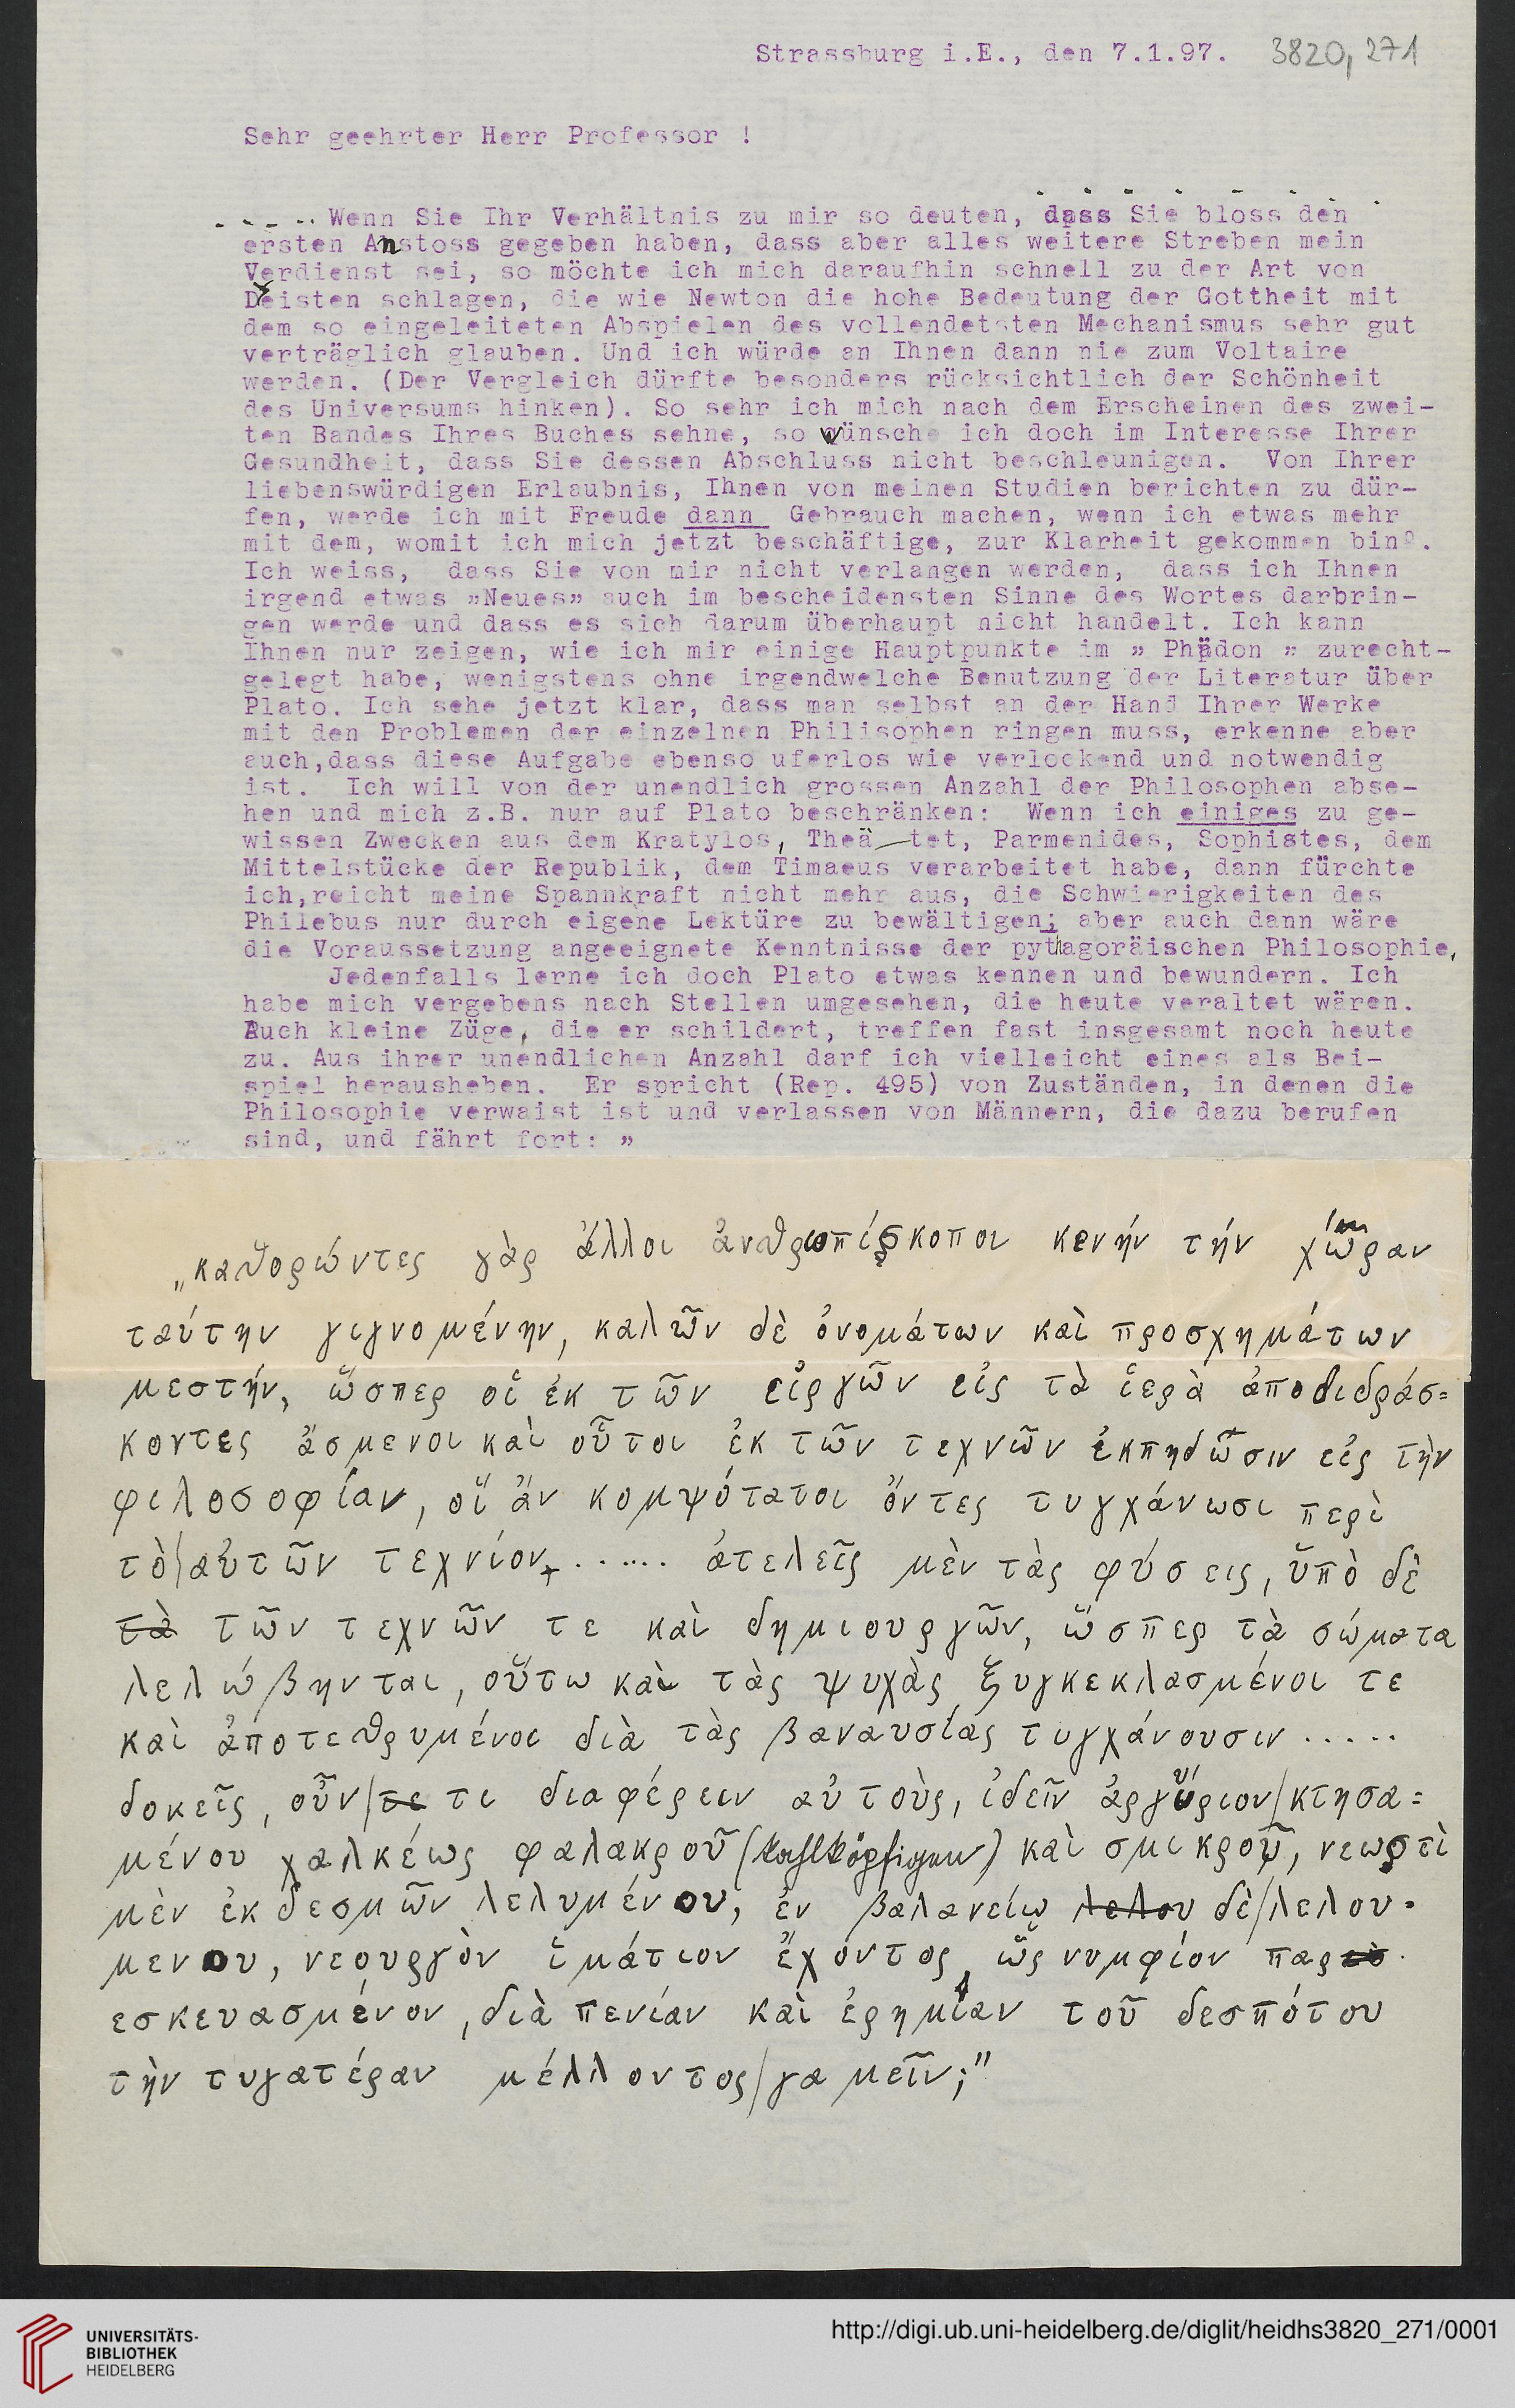 Strassburg i.E., den 7.1.97. 3820, 271
Sehr geehrter Herr Professor !
. . . .. Wenn Sie Ihr Verhältnis zu mir so deuten, dass Sie bloss den
ersten Anstoss gegeben haben, dass aber alles weitere Streben mein
Verdienst sei, so möchte ich mich daraufhin schnell zu der Art von
Deisten schlagen, die wie Newton die hohe Bedeutung der Gottheit mit
dem so eingeleiteten Abspielen des vollendetsten Mechanismus sehr gut
verträglich glauben. Und ich würde an Ihnen dann nie zum Voltaire
werden. (Der Vergleich dürfte besonders rücksichtlich der Schönheit
des Universums hinken). So sehr ich mich nach dem Erscheinen des zwei-
ten Bandes Ihres Buches sehne, so wünsche ich doch im Interesse Ihrer
Gesundheit, dass Sie dessen Abschluss nicht beschleunigen. Von Ihrer
liebenswürdigen Erlaubnis, Ihnen von meinen Studien berichten zu dür-
fen, werde ich mit Freude dann Gebrauch machen, wenn ich etwas mehr
mit dem, womit ich mich jetzt beschäftige, zur Klarheit gekommen bin.
Ich weiss, dass Sie von mir nicht verlangen werden, dass ich Ihnen
irgend etwas »Neues» auch im bescheidensten Sinne des Wortes darbrin-
gen werde und dass es sich darum überhaupt nicht handelt. Ich kann
Ihnen nur zeigen, wie ich mir einige Hauptpunkte im » Phädon » zurecht-
gelegt habe, wenigstens ohne irgendwelche Benutzung der Literatur über
Plato. Ich sehe jetzt klar, dass man selbst an der Hand Ihrer Werke
mit den Problemen der einzelnen Philisophen ringen muss, erkenne aber
auch,dass diese Aufgabe ebenso uferlos wie verlockend und notwendig
ist. Ich will von der unendlich grossen Anzahl der Philosophen abse-
hen und mich z.B. nur auf Plato beschränken: Wenn ich einiges zu ge-
wissen Zwecken aus dem Kratylos, Theä-tet, Parmenides, Sophistes, dem
Mittelstücke der Republik, dem Timaeus verarbeitet habe, dann fürchte
ich,reicht meine Spannkraft nicht mehr aus, die Schwierigkeiten des
Philebus nur durch eigene Lektüre zu bewältigen; aber auch dann wäre
die Voraussetzung angeeignete Kenntnisse der pythagoräischen Philosophie,
Jedenfalls lerne ich doch Plato etwas kennen und bewundern. Ich
habe mich vergebens nach Stellen umgesehen, die heute veraltet wären.
Auch kleine Züge, die er schildert, treffen fast insgesamt noch heute
zu. Aus ihrer unendlichen Anzahl darf ich vielleicht eines als Bei-
spiel herausheben. Er spricht (Rep. 495) von Zuständen, in denen die
Philosophie verwaist ist und verlassen von Männern, die dazu berufen
sind, und fährt fort: »
„καθορώντες γὰρ ἄλλοι ἀνθρωπίσκοποι κενήν τήν χώραν
ταύτην γιγνομένην, καλῶν δὲ ὀνομάτων καὶ προσχημάτων
μεστήν, ὥσπερ οἱ ἐκ τῶν εἱργῶν εἰς τὰ ἱερὰ ἀποδιδράσ=
κοντες ἄσμενοι καὶ οὗτοι ἐκ τῶν τεχνῶν ἐκπηδῶσιν εἰς τὴν
φιλοσοφίαν, οἵ ἂν κομψότατοι ὄντες τυγχάνωσι περὶ
τὸ/αὑτῶν τεχνίον, ...... ἀτελεῖς μὲν τὰς φύσεις, ὑπὸ δὲ
τὰ τῶν τεχνῶν τε καὶ δημιουργῶν, ὥσπερ τὰ σώματα
λελώβηνται, οὕτω καὶ τὰς ψυχὰς ξυγκεκλασμένοι τε
καὶ ἀποτεθρυμένοι διὰ τὰς βαναυσίας τυγχάνουσιν .....
δοκεῖς, οὖν/τε τι διαφέρειν αὐτοὺς, ἰδεῖν ἀργύριον/κτησα=
μένου χαλκέως φαλακροῦ (kahlköpfigen) καὶ σμικροῦ, νεωστὶ
μὲν ἐκ δεσμῶν λελυμένου, ἐν βαλανείω λελου δὲ/λελου=
μενου, νεουργὸν ἱμάτιον ἔχόντος, ὥς νυμφίον παρεσ
εσκευασμένον, διὰ πενίαν καὶ ἐρημίαν τοῦ δεσπότου
τὴν τυγατέραν μέλλοντος/γαμεῖν;"
UNIVERSITÄTS-
BIBLIOTHEK
HEIDELBERG
http://digi.ub.uni-heidelberg.de/diglit/heidhs3820_271/0001